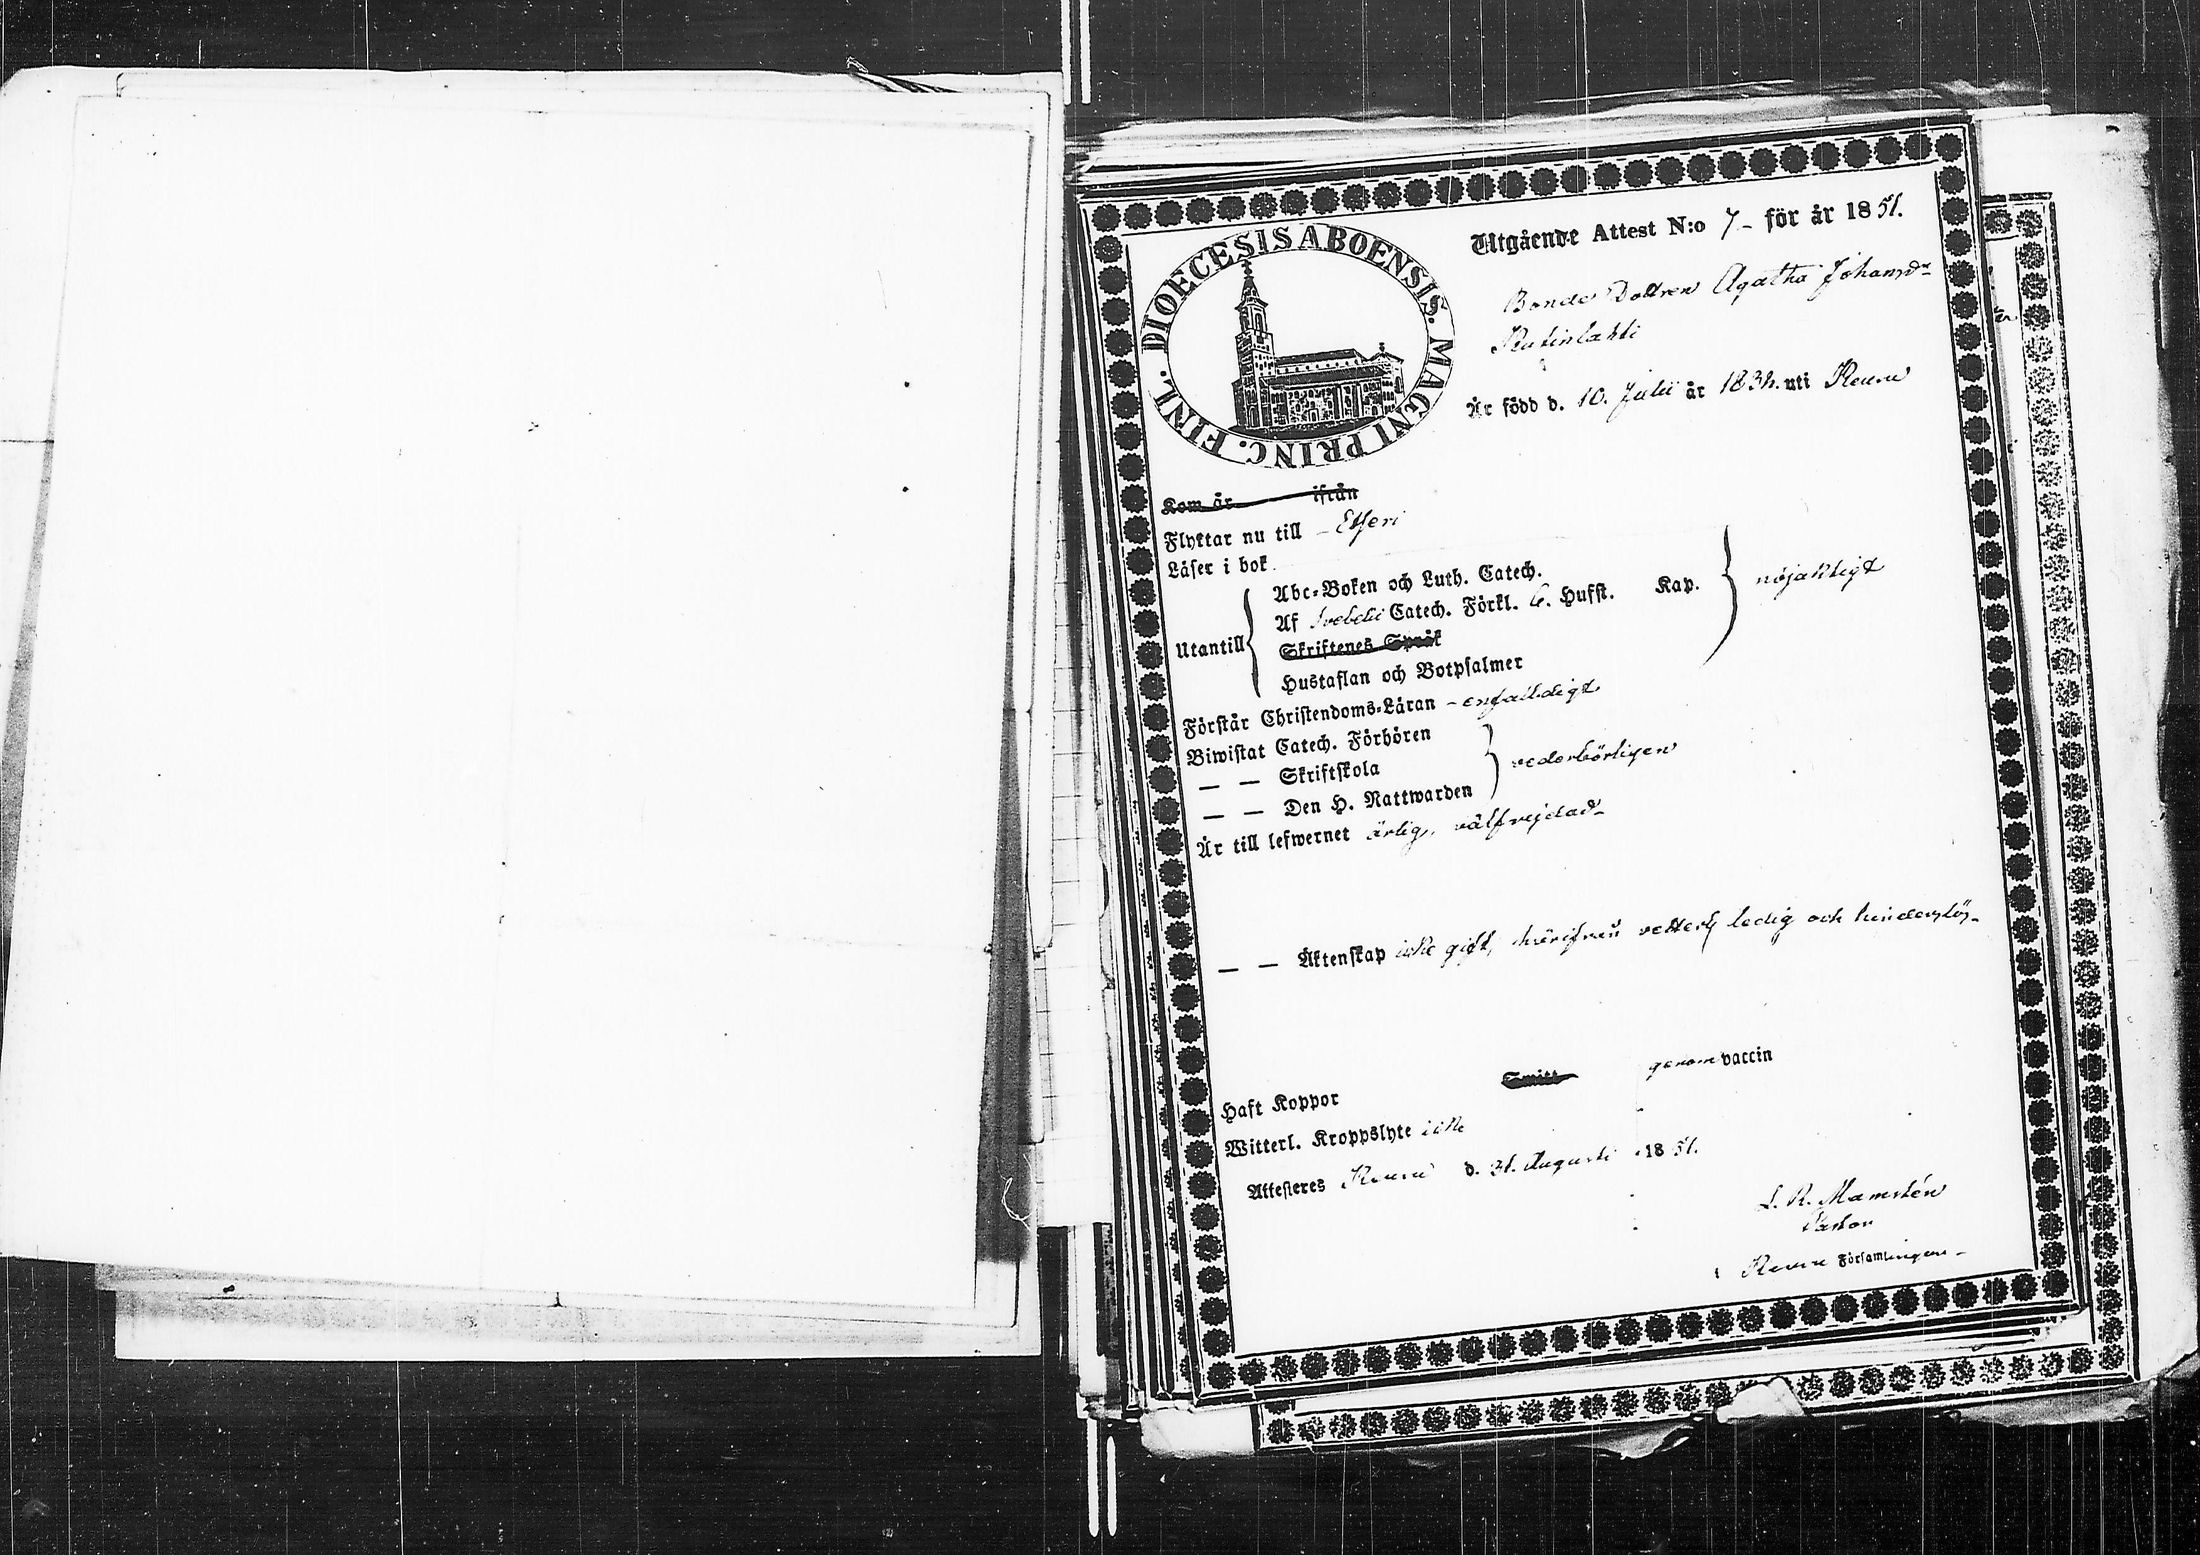 DIOECESIS ABOENSIS. MAGNI PRINC. FINL.
Utgående Attest N:o 7 - för år 1851.
Bonde Dottren Agatha Johansdr
Är född d. 10. Julii år 1834. uti Keuru
Kom år ifrån
Flyttar nu till - Etseri
Läser i bok
Utantill
Abc-Boken och Luth. Catech.
Af Svebelii Catech. Förkl. 6. Hufst. Kap. nöjaktigt
Skriftenes Språk
Hustaflan och Botpsalmer
Förstår Christendoms-Läran - enfaldigt
Biwistat Catech. Förhören
— — Skriftskola vederbörligen
— — Den H. Nattwarden
Är till lefwernet ärlig, välfrejdad
— — Äktenskap icke gift, härifrån ledig och hinderslös
Haft Koppor Smitt genom vaccin
Witterl. Kroppslyte icke
Attesteres Keuru d. 31. Augusti 1851.
Pastor
i Keuru Församlingen